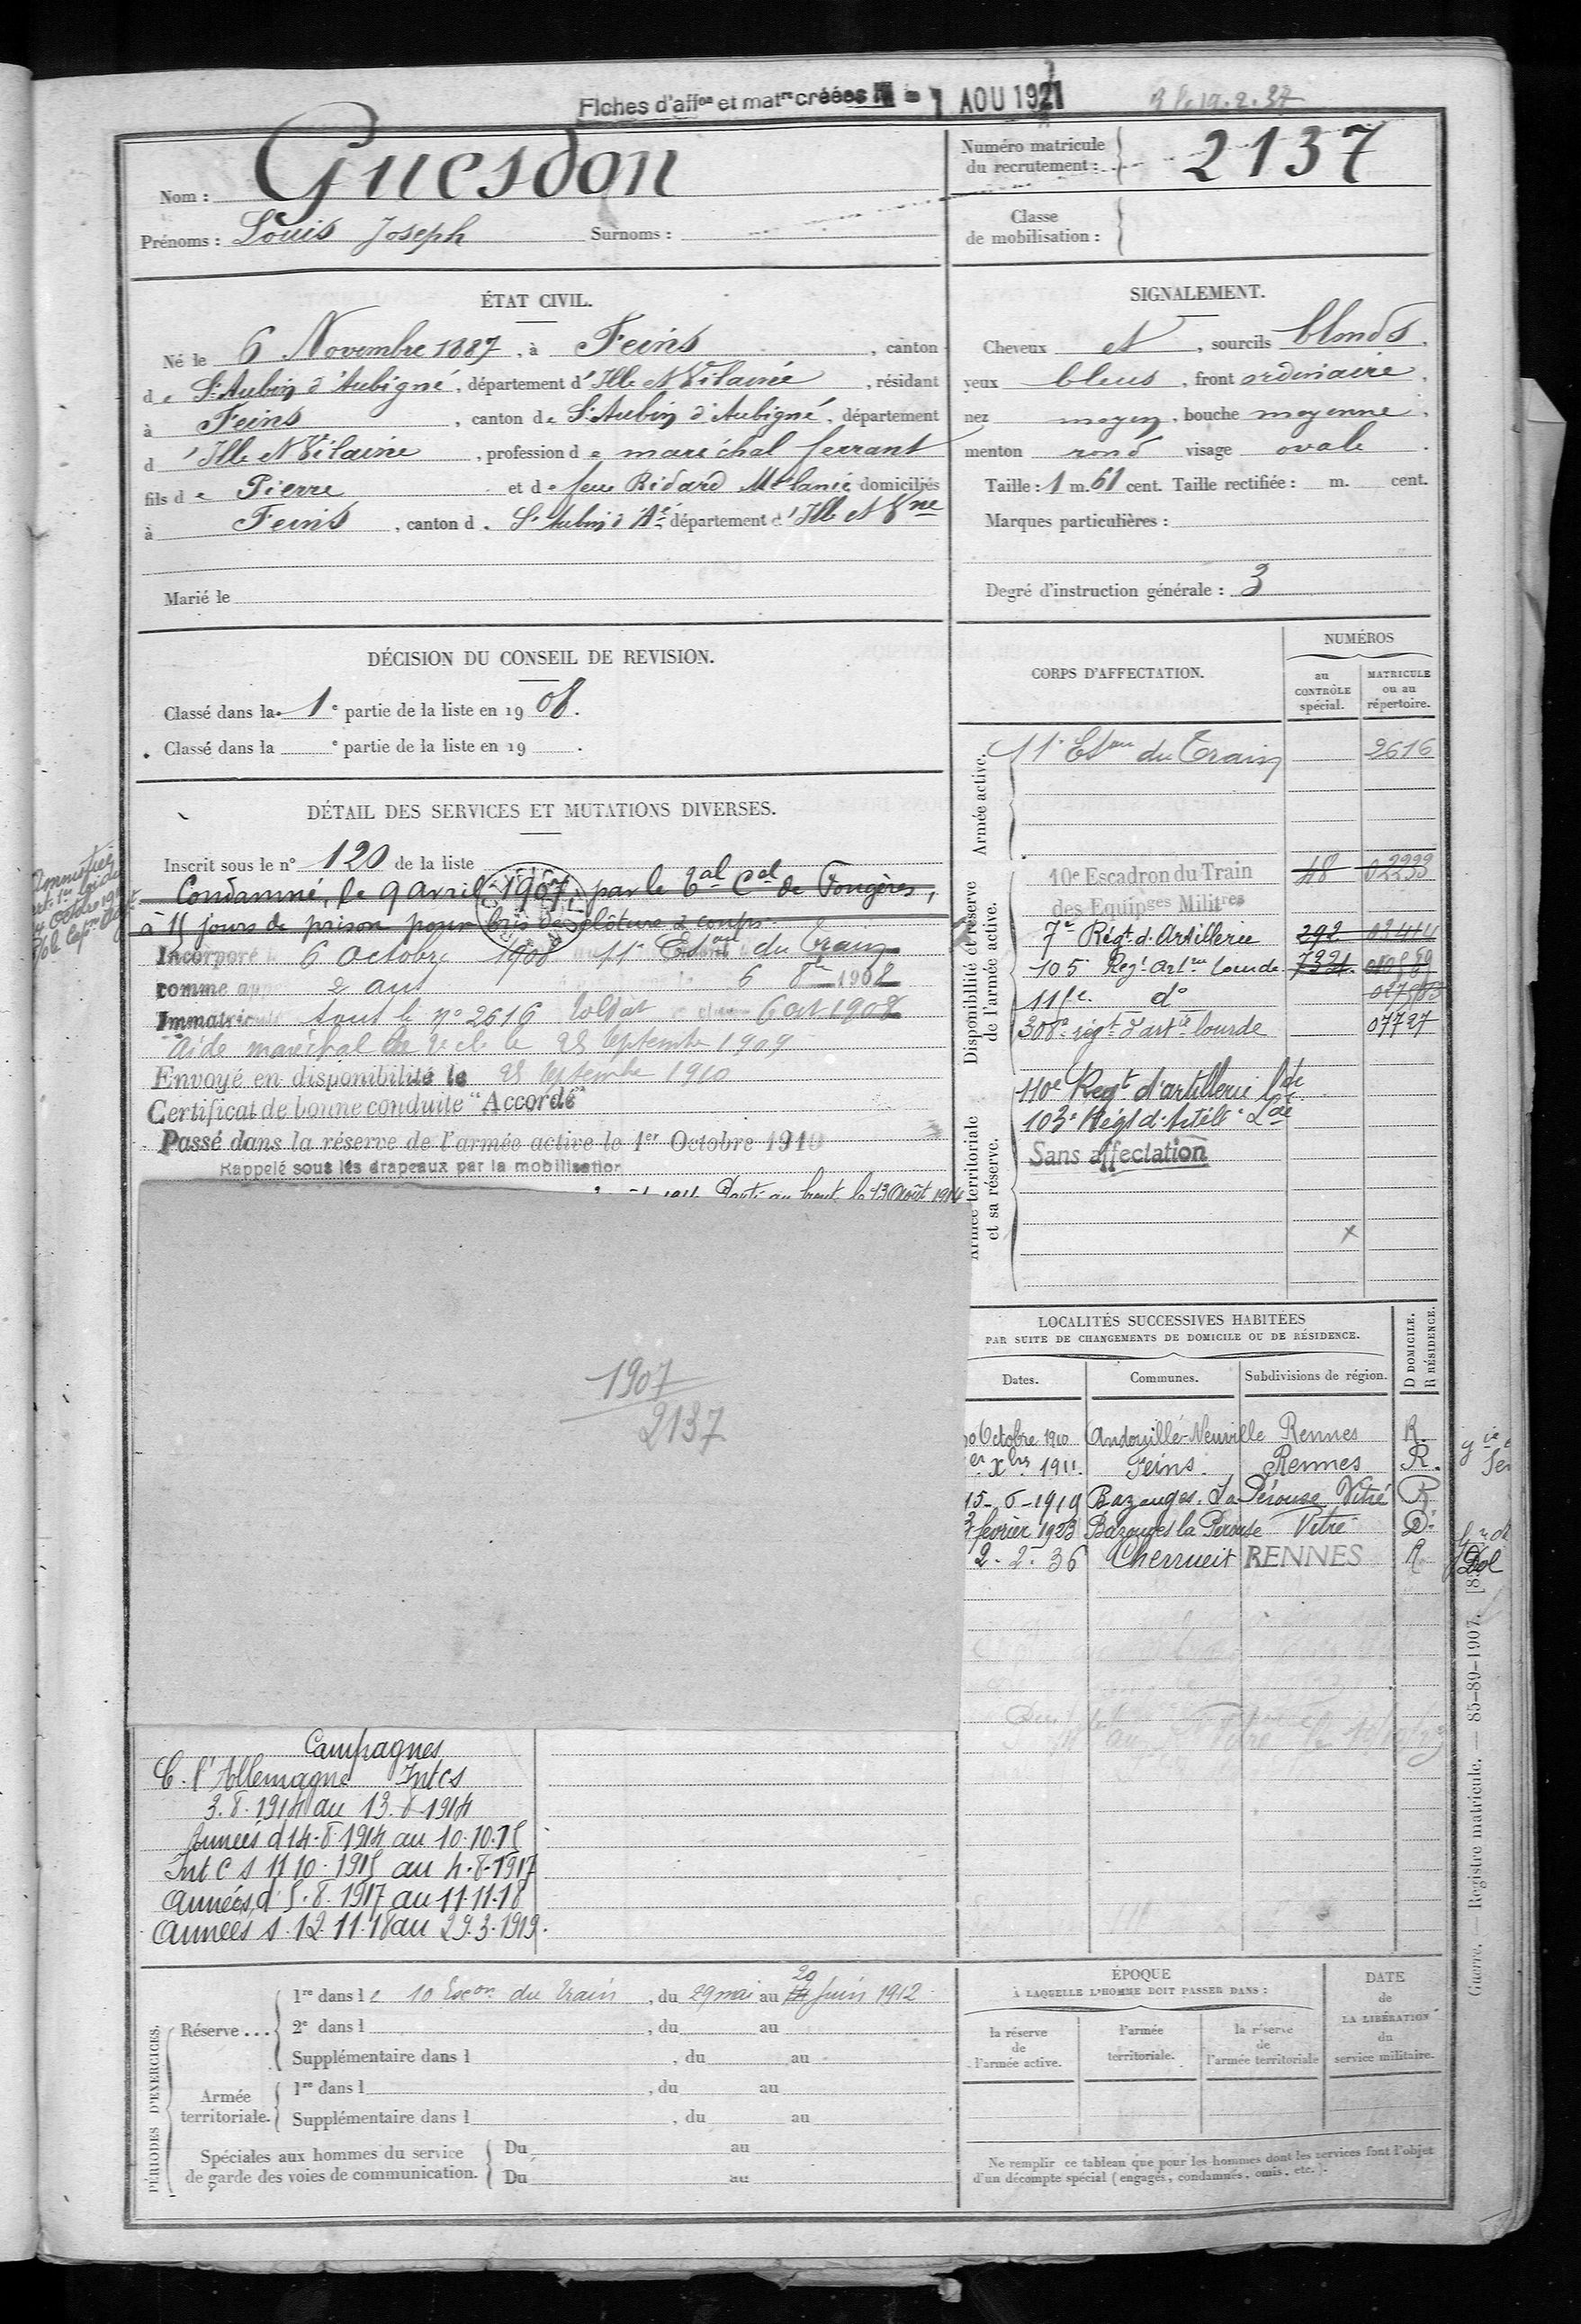 Fiches d'aff on et mat re créées le - 1 AOU 1921
Nom : Guesdon
Prénoms : Louis Joseph Surnoms :
Numéro matricule
du recrutement : 2137
Classe
de mobilisation :
ÉTAT CIVIL.
Né le 6 Novembre 1887, à Feins, canton
de St Aubin d'Aubigné, département d'Ille et Vilaine, résidant
à Feins, canton de St Aubin d'Aubigné, département
d'Ille et Vilaine, profession de maréchal ferrant
fils de Pierre et de feue Ridard Mélanie domiciliés
à Feins, canton d. St Aubin d'Aé département d'Ille et Vne
Marié le
SIGNALEMENT.
Cheveux et, sourcils blonds,
yeux bleus, front ordinaire,
nez moyen, bouche moyenne,
menton rond visage ovale.
Taille : 1 m. 61 cent. Taille rectifiée : m. cent.
Marques particulières :
Degré d'instruction générale : 3
DÉCISION DU CONSEIL DE REVISION.
Classé dans la 1e partie de la liste en 1908.
Classé dans la e partie de la liste en 19 .
DÉTAIL DES SERVICES ET MUTATIONS DIVERSES.
Inscrit sous le n° 120 de la liste
Condamné, le 9 avril 1907, par le Tal Cel de Fougères,
à 15 jours de prison pour bris de clôture & coups
Incorporé 6 Octobre 1908 11e Eson du train
comme 2 ans 6 8bre 1908
Immatriculé sous le n° 2616 soldat 6 oct 1908
Aide maréchal de 2e cl. le 25 septembre 1909
Envoyé en disponibilité le 25 septembre 1910
Certificat de bonne conduite "Accordé"
Passé dans la réserve de l'armée active le 1er Octobre 1910
Rappelé sous les drapeaux par la mobilisation
Parti au front le 13 Août 1914
1907
2137
CORPS D'AFFECTATION.
NUMÉROS
au
CONTRÔLE
spécial.
MATRICULE
ou au
répertoire.
Armée active.
11e Eson du Train 2616
Disponibilité et réserve
de l'armée active.
10e Escadron du Train 48 02299
des Equipges Militres
7e Régt d'Artillerie 292 03414
105 Regt Artrie lourde 7321
111e do
308e régt d'artie lourde 07727
Armée territoriale
et sa réserve.
110e Regt d'artillerie Lde
103e Régt d'Artélie Lde
Sans affectation
LOCALITÉS SUCCESSIVES HABITÉES
PAR SUITE DE CHANGEMENTS DE DOMICILE OU DE RÉSIDENCE.
Dates. Communes. Subdivisions de région. D DOMICILE. R RÉSIDENCE.
Octobre 1910 Andouillé-Neuville Rennes R.
er Xbre 1911. Feins. Rennes R.
15-6-1919 Bazouges. La Pérouse Vitré R
février 1923 Bazouges la Perouse Vitré D.
2. 2. 36 Cherrueix RENNES R Dol
Campagnes
C. l'Allemagne Int Cs
3.8.1914 au 13.8.1914
Années d 14.8.1914 au 10.10.15
Int C s 11 10.1915 au 4.8.1917
Années d 5.8.1917 au 11.11.18
Années s. 12.11.18 au 29.3.1919.
PÉRIODES D'EXERCICES.
Réserve ...
1re dans le 10 Escon du train, du 29 mai au 20 juin 1912
2e dans l , du au
Supplémentaire dans l , du au
Armée
territoriale.
1re dans l , du au
Supplémentaire dans l , du au
Spéciales aux hommes du service
de garde des voies de communication.
Du au
Du au
ÉPOQUE
À LAQUELLE L'HOMME DOIT PASSER DANS :
la réserve
de
l'armée active.
l'armée
territoriale.
la réserve
de
l'armée territoriale
DATE
de
LA LIBÉRATION
du
service militaire.
Ne remplir ce tableau que pour les hommes dont les services font l'objet
d'un décompte spécial (engagés, condamnés, omis, etc.).
Guerre. — Registre matricule. — 85-89-1907.